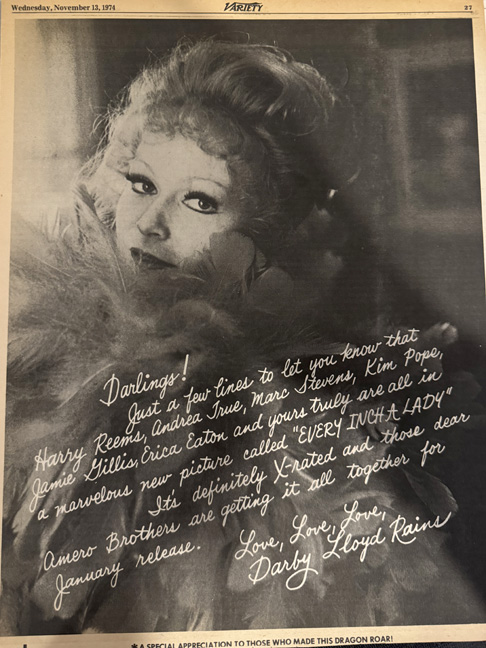 Wednesday, November 13, 1974 VARIETY 27
Darlings!
Just a few lines to let you know that
Harry Reems, Andrea True, Marc Stevens, Kim Pope,
Jamie Gillis, Erica Eaton and yours truly are all in
a marvelous new picture called "EVERY INCH A LADY"
It's definitely X-rated and those dear
Amero Brothers are getting it all together for
January release.
Love, Love, Love,
Darby Lloyd Rains
* A SPECIAL APPRECIATION TO THOSE WHO MADE THIS DRAGON ROAR!